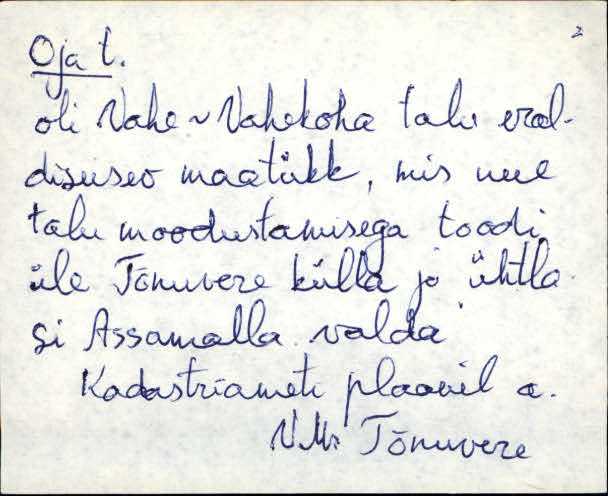 2
Oja t.
oli Vahe ~ Vahekoha talu eral-
diseisev maatükk, mis uue
talu moodustamisega toodi
üle Tõnuvere külla ja ühtla-
si Assamalla valda
Kadastriameti plaanil a.
V.M. Tõnuvere